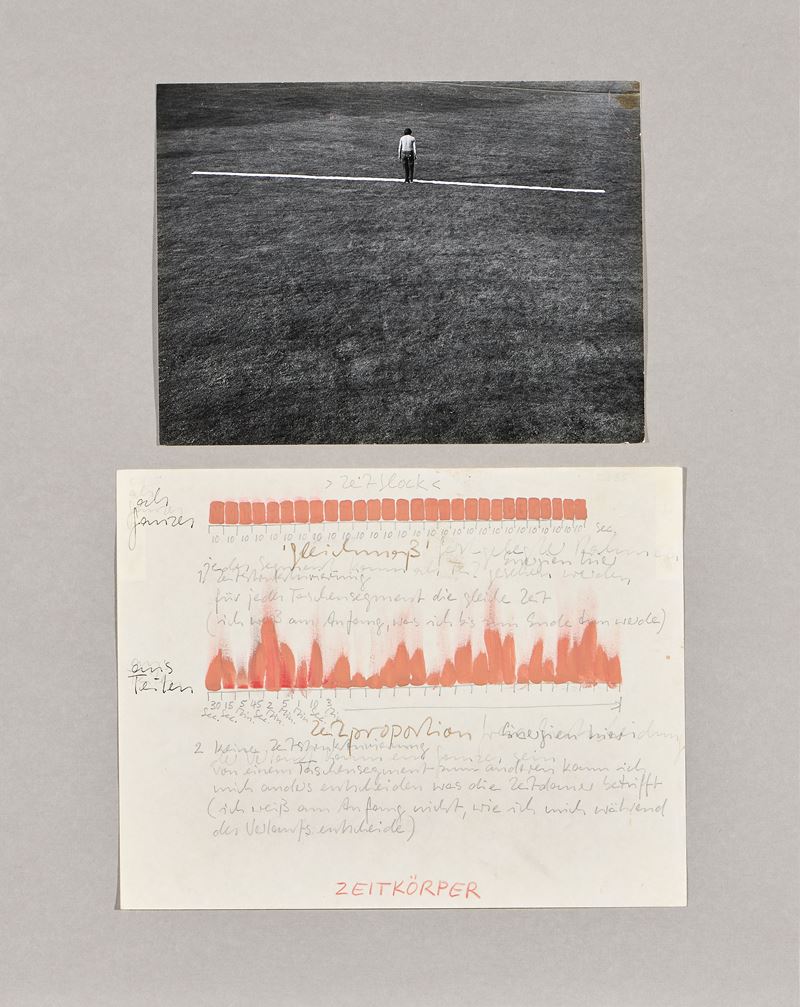 >Zeitblock<
als
Ganzes
10 10 10 10 10 10 10 10 10 10 10 10 10 10 10 10 10 10 10 10 10 10 10 10 10 10 Sec.
'gleichmaß'
1) Zeitstrukturierung
für jedes Taschensegment die gleiche Zeit
(ich weiß am Anfang, was ich bis zum Ende tun werde)
aus
Teilen
30 15 5 45 2 5 1 10 3
Sec. Sec. Min. Sec. Min. Min. Min. Sec. Min.
Zeitproportion
2 keine Zeitstrukturierung
von einem Taschensegment zum anderen kann ich
mich anders entscheiden was die Zeitdauer betrifft
(ich weiß am Anfang nicht, wie ich mich während
des Verlaufs entscheide)
ZEITKÖRPER